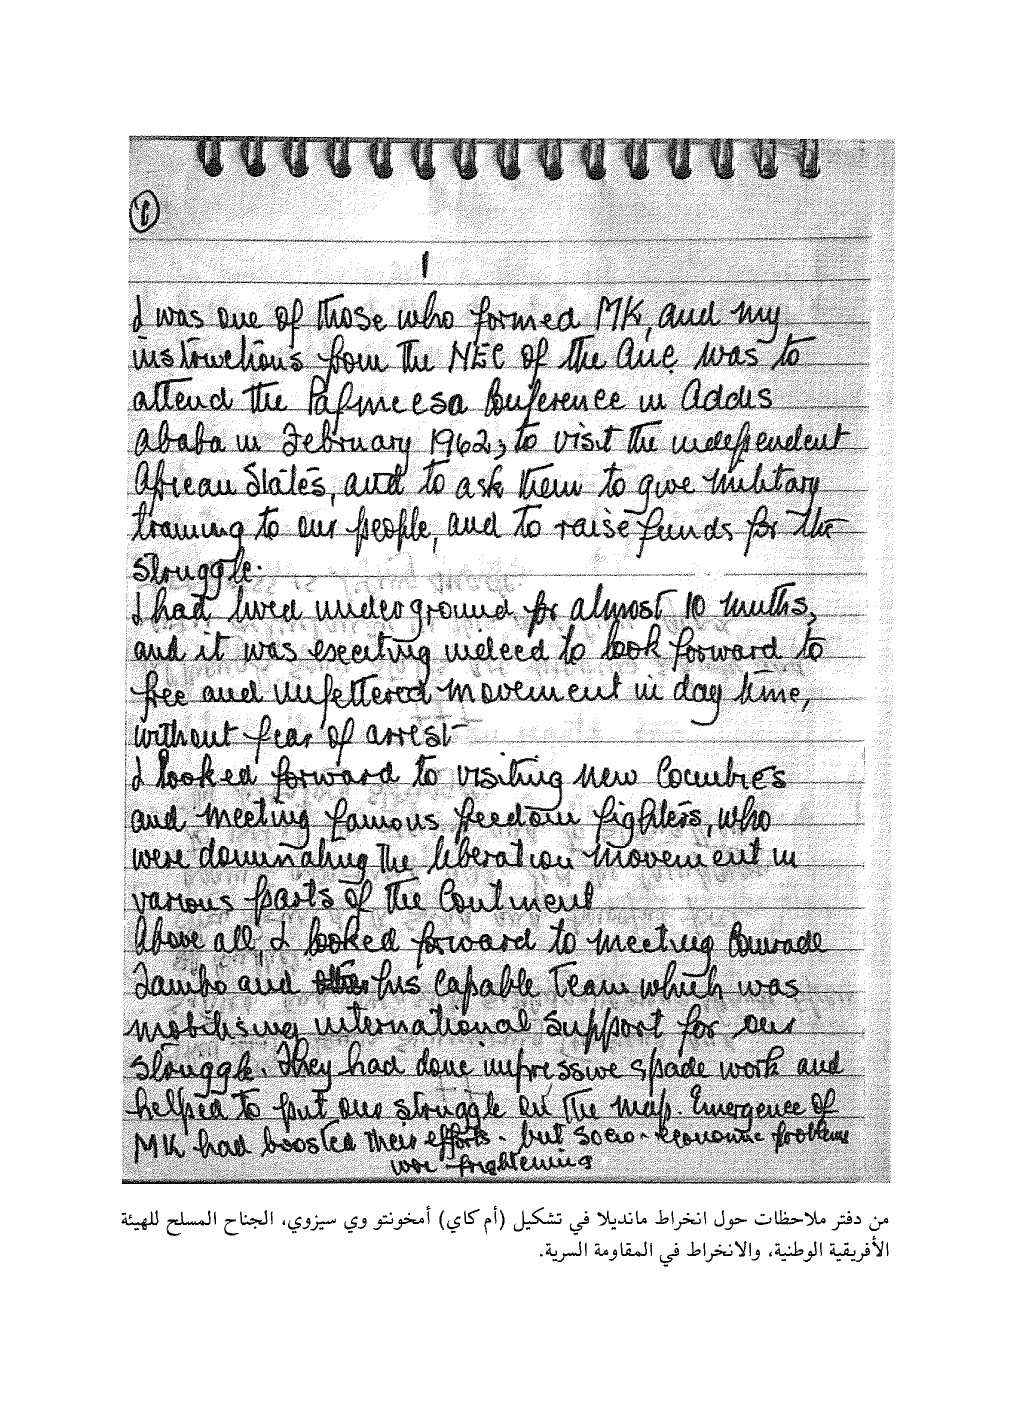 1
I was one of those who formed MK, and my
instructions from the NEC of the ANC was to
attend the Pafmecsa Conference in Addis
Ababa in February 1962; to visit the independent
African States, and to ask them to give military
training to our people, and to raise funds for the
struggle.
I had lived underground for almost 10 months,
and it was exciting indeed to look forward to
free and unfettered movement in day time,
without fear of arrest
I looked forward to visiting new Countries
and meeting famous freedom fighters, who
were dominating the liberation movement in
various parts of the Continent
Above all, I looked forward to meeting Comrade
Tambo and his capable team which was
mobilising international support for our
struggle. They had done impressive spade work and
helped to put our struggle on the map. Emergence of
MK had boosted their efforts - but socio-economic problems
were frightening
من دفتر ملاحظات حول انخراط مانديلا في تشكيل (أم كاي) أمخونتو وي سيزوي، الجناح المسلح للهيئة
الأفريقية الوطنية، والانخراط في المقاومة السرية.